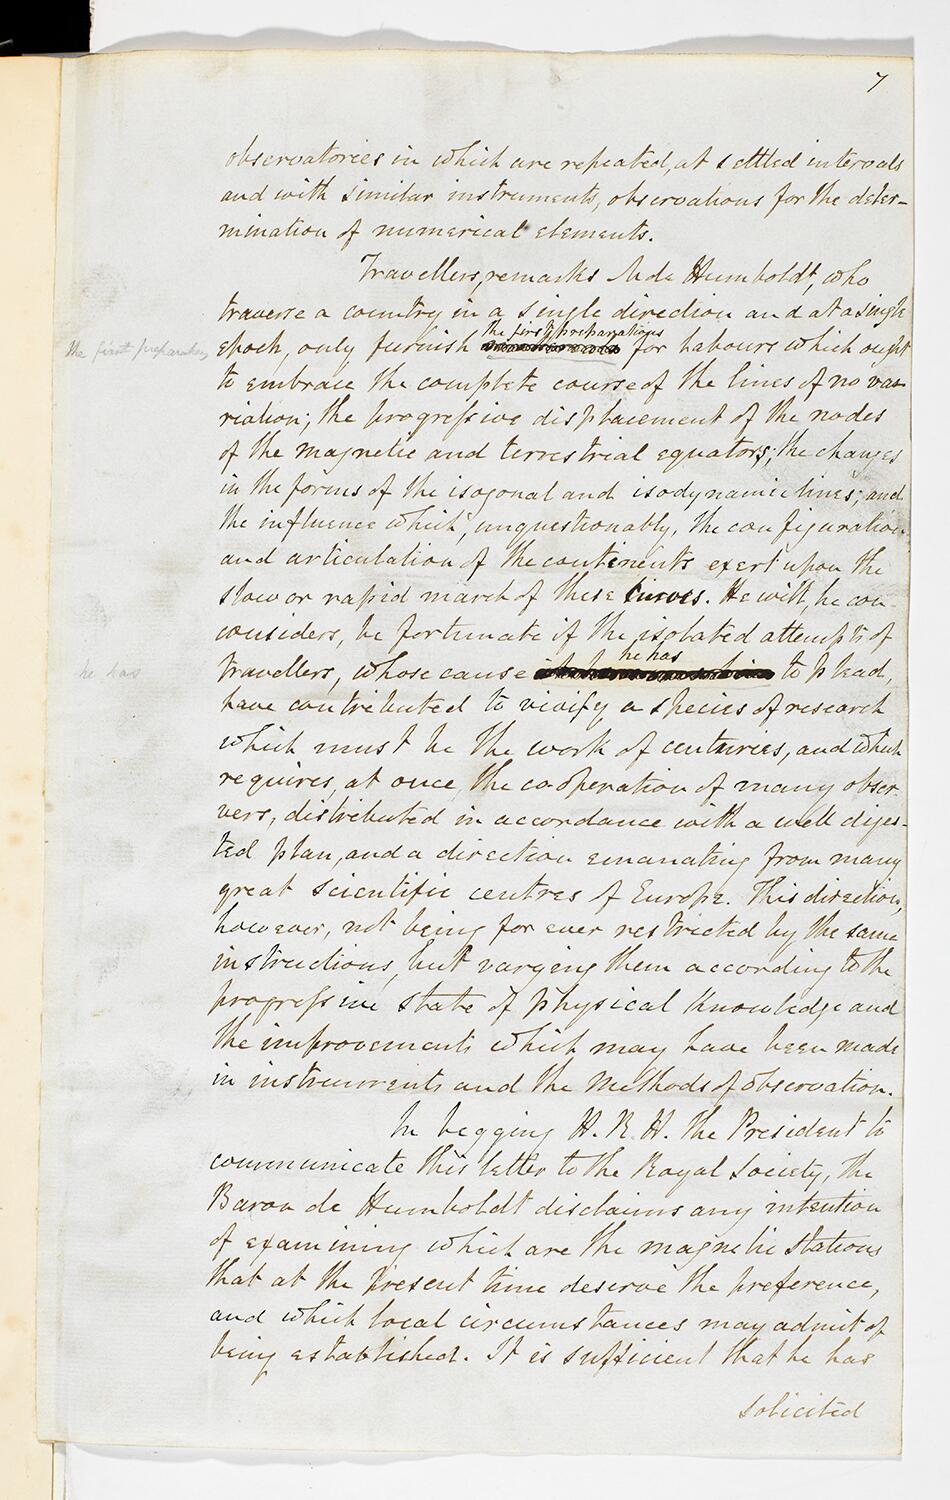 7
observatories in which are repeated, at settled intervals
and with similar instruments, observations for the deter-
mination of numerical elements.
Travellers, remarks M de Humboldt, who
traverse a country in a single direction and at a single
the first preparations
epoch, only furnish for labours which ought
the first preparations
to embrace the complete course of the lines of no va-
riation; the progressive displacement of the nodes
of the magnetic and terrestrial equators; the changes
in the forms of the isogonal and isodynamic lines; and
the influence which, unquestionably, the configuration
and articulation of the continents exert upon the
slow or rapid march of these curves. He will, he con-
considers, be fortunate if the isolated attempts of
he has
travellers, whose cause to plead,
he has
have contributed to vivify a species of research
which must be the work of centuries, and which
requires, at once, the cooperation of many obser-
vers, distributed in accordance with a well diges-
ted plan, and a direction emanating from many
great scientific centres of Europe. This direction,
however, not being for ever restricted by the same
instructions, but varying them according to the
progressive state of physical knowledge and
the improvements which may have been made
in instruments and the methods of observation.
In begging H. R. H. the President to
communicate this letter to the Royal Society, the
Baron de Humboldt disclaims any intention
of examining which are the magnetic stations
that at the present time deserve the preference,
and which local circumstances may admit of
being established. It is sufficient that he has
solicited